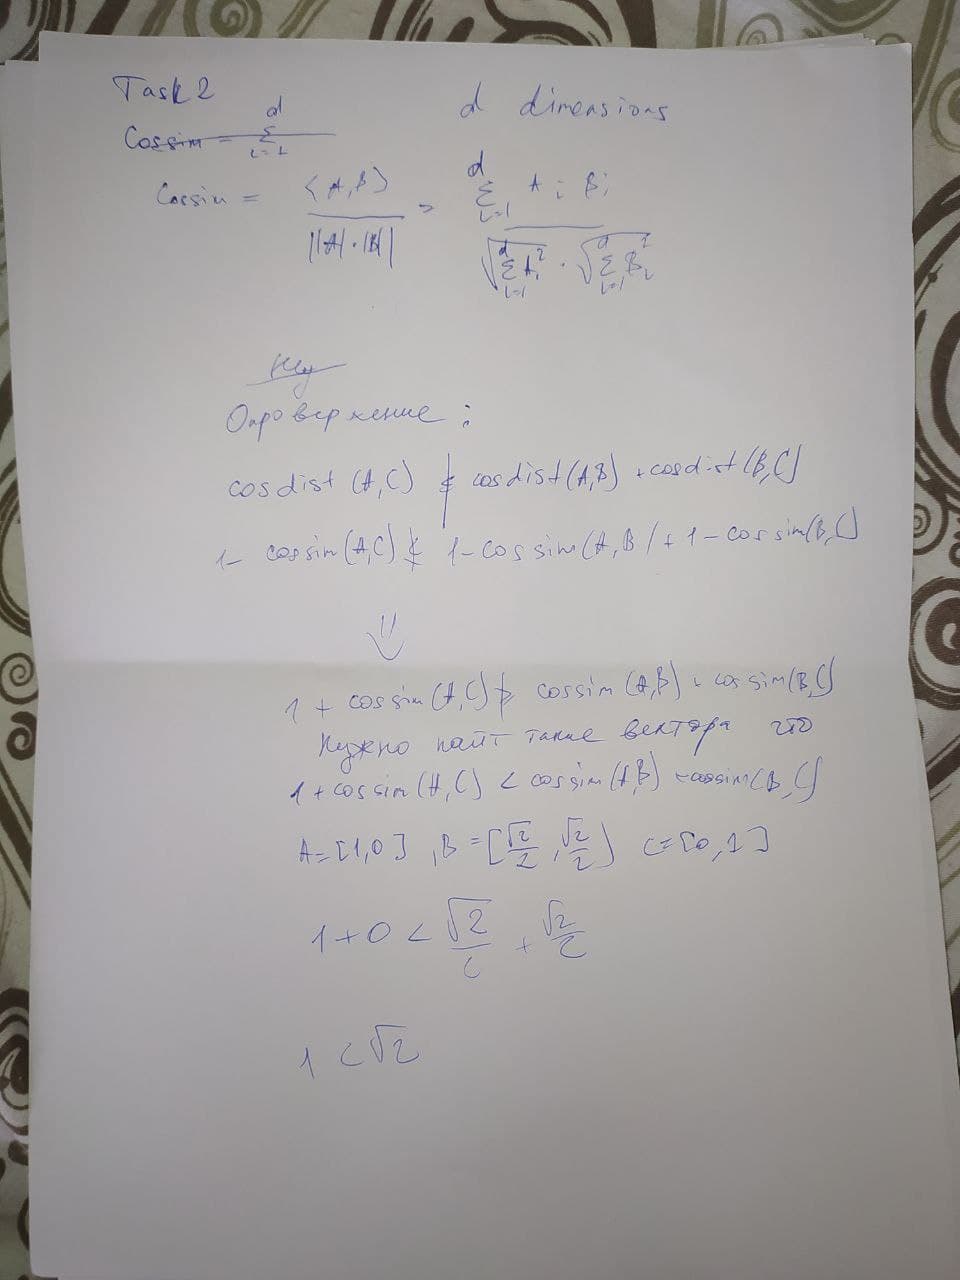 Task 2
d dimensions
Cossim = d Σ i=1
Cossim = <A,B> / ||A|·|B|| = d Σ i=1 A i B i / √(d Σ i=1 A i ²) · √(d Σ i=1 B i ²)
Опровержение :
cosdist (A,C) ≰ cosdist (A,B) + cosdist (B,C)
1 - cossim (A,C) ≰ 1 - cossim (A,B) + 1 - cossim (B,C)
⇓
1 + cossim (A,C) ≱ cossim (A,B) + cossim (B,C)
Нужно найт такие вектора что
1 + cossim (A,C) < cossim (A,B) + cossim (B,C)
A = [1,0] , B = [√2/2 , √2/2) C = [0,1]
1 + 0 < √2/2 + √2/2
1 < √2